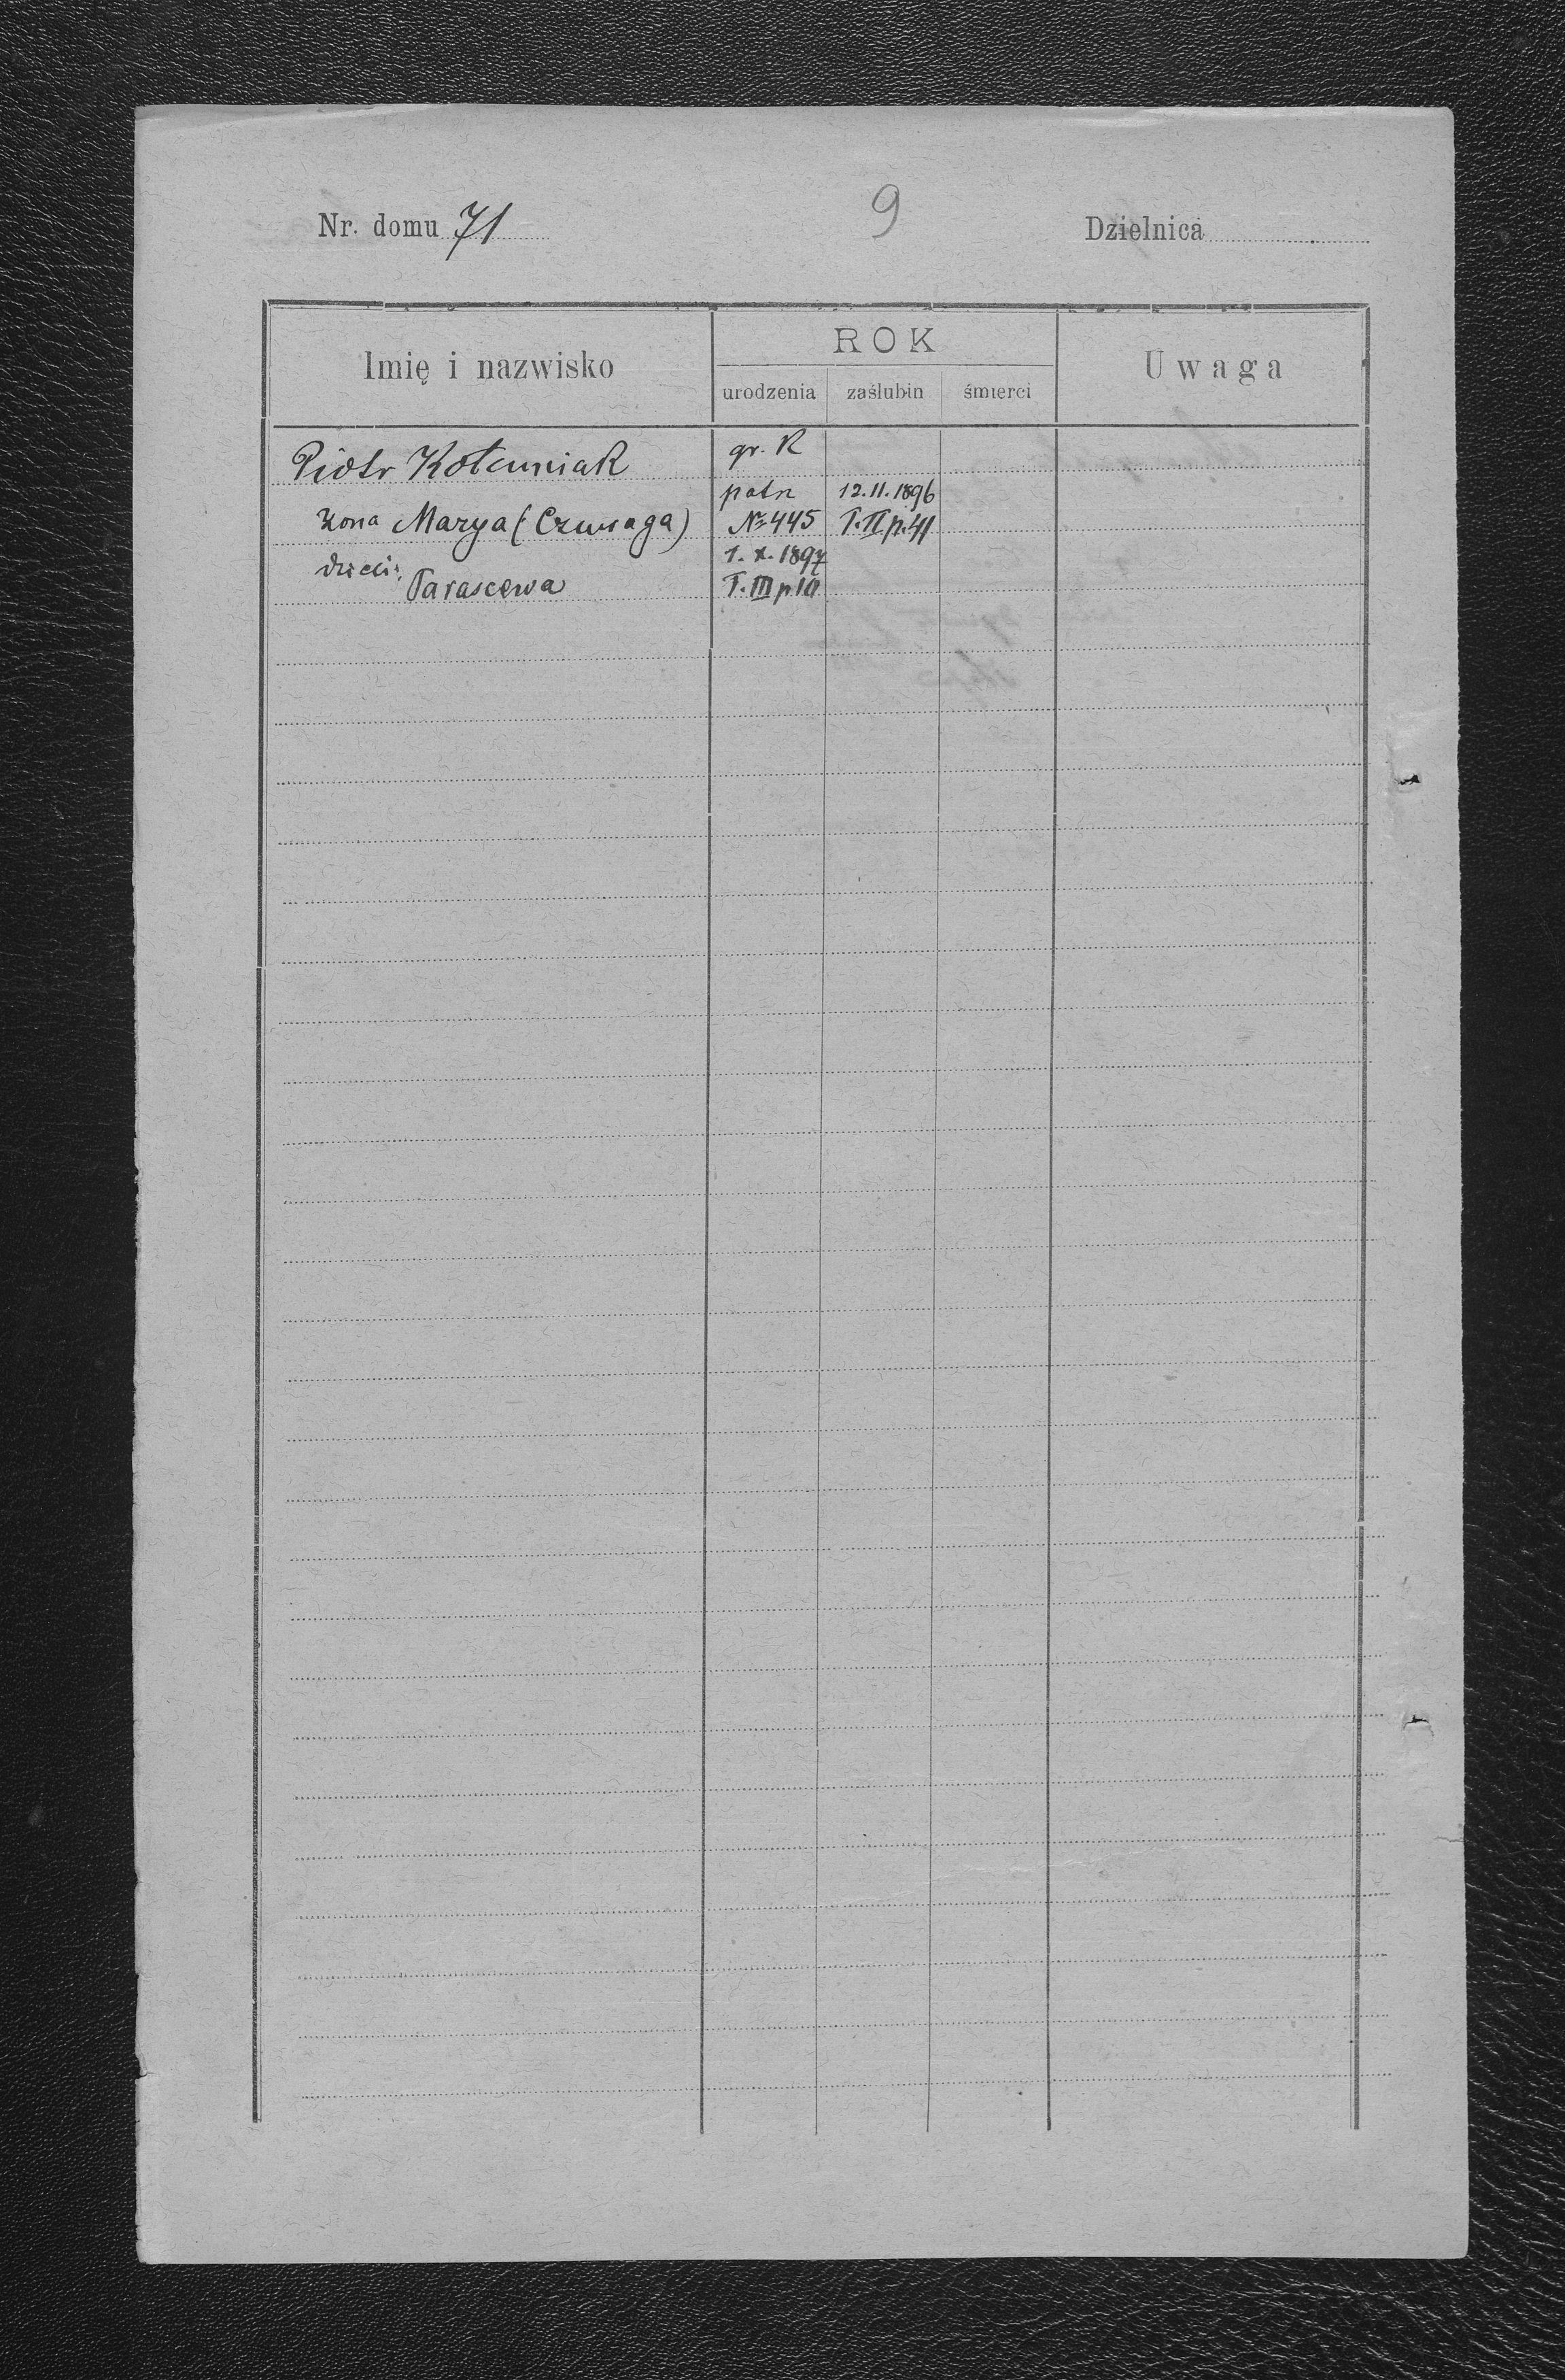 Nr. domu 71
9
Dzielnica
Imię i nazwisko
ROK
urodzenia
zaślubin
śmierci
Uwaga
Piotr Kołcuniak gr. R
patrz 12.II.1896
żona Marya (Czwaga) № 445 T.II p.41
dzieci: 1.X.1897
Parascewa T.III p.10